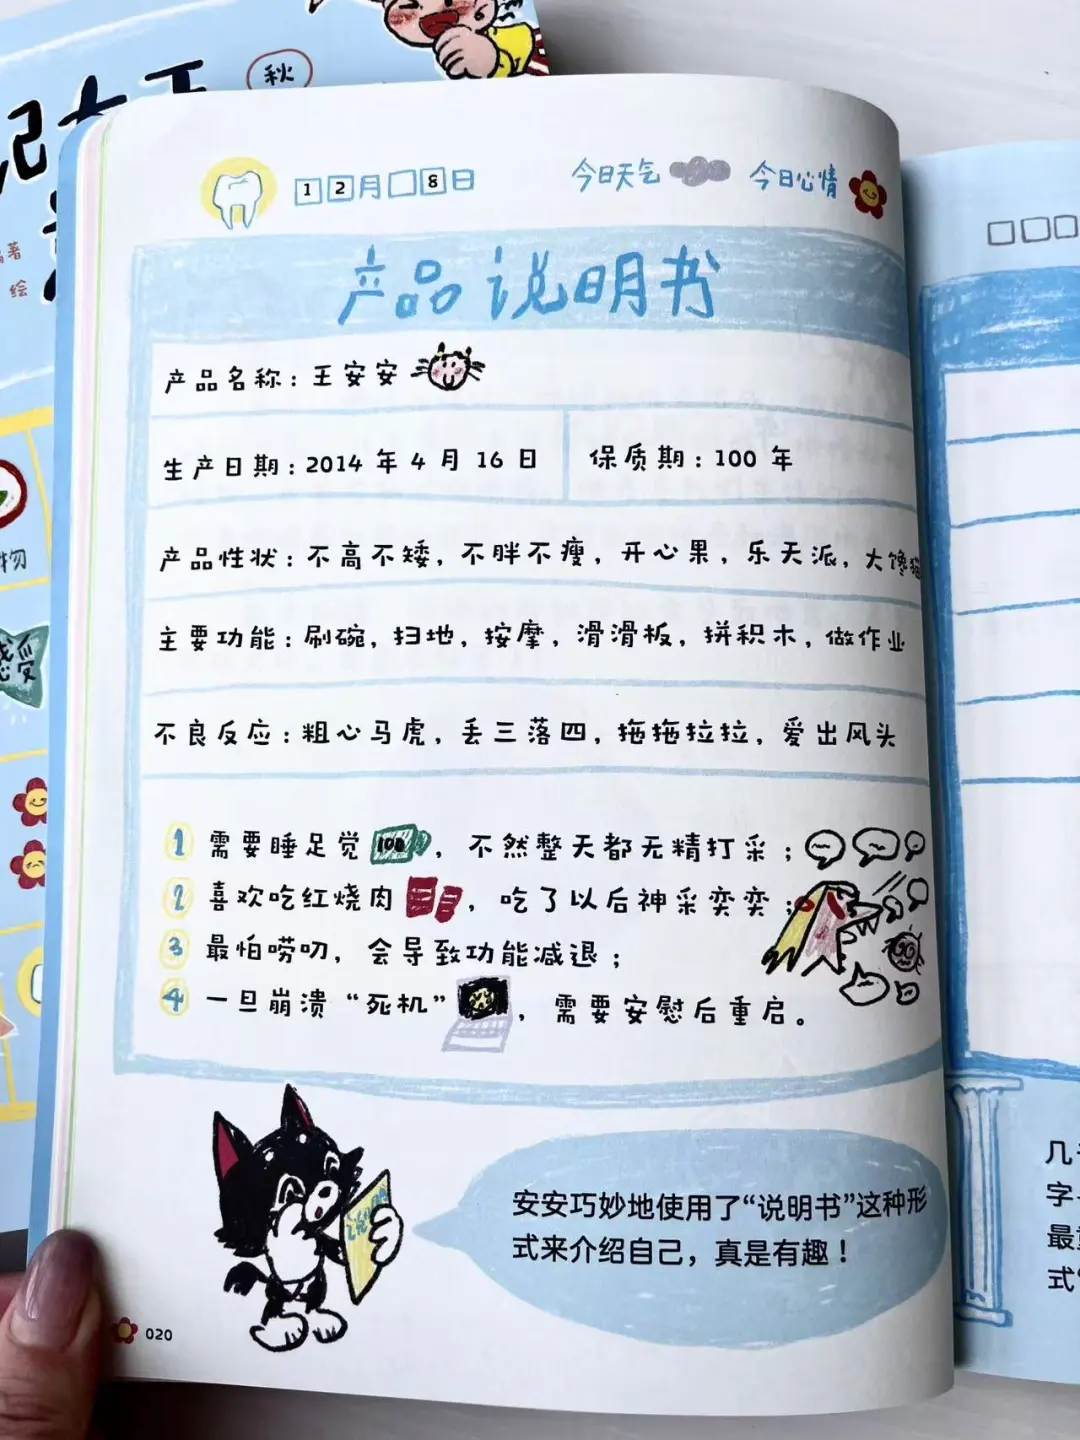 秋
著
绘
物
感受
12月8日 今日天气 今日心情
产品说明书
产品名称：王安安
生产日期：2014 年 4 月 16 日 保质期：100 年
产品性状：不高不矮，不胖不瘦，开心果，乐天派，大馋猫
主要功能：刷碗，扫地，按摩，滑滑板，拼积木，做作业
不良反应：粗心马虎，丢三落四，拖拖拉拉，爱出风头
1 需要睡足觉 100 ，不然整天都无精打采；
2 喜欢吃红烧肉 ，吃了以后神采奕奕；
3 最怕唠叨，会导致功能减退；
4 一旦崩溃“死机” ，需要安慰后重启。
安安巧妙地使用了“说明书”这种形
式来介绍自己，真是有趣！
020
几
字
最
式